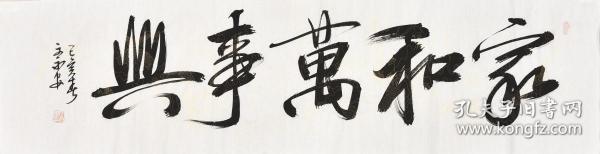 家和萬事興
己亥春
孔夫子旧书网
www.kongfz.com